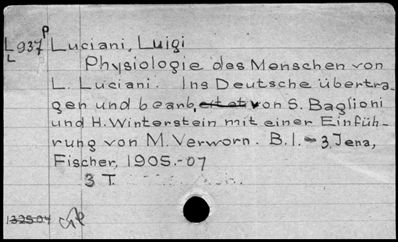 P
L937 Luciani, Luigi
L
Physiologie des Menschen von
L. Luciani. Ins Deutsche übertra-
gen und bearb. von S. Baglioni
und H. Winterstein mit einer Einfüh-
rung von M. Verworn. B. 1.-3. Jena,
Fischer, 1905.-07
3 T.
132904